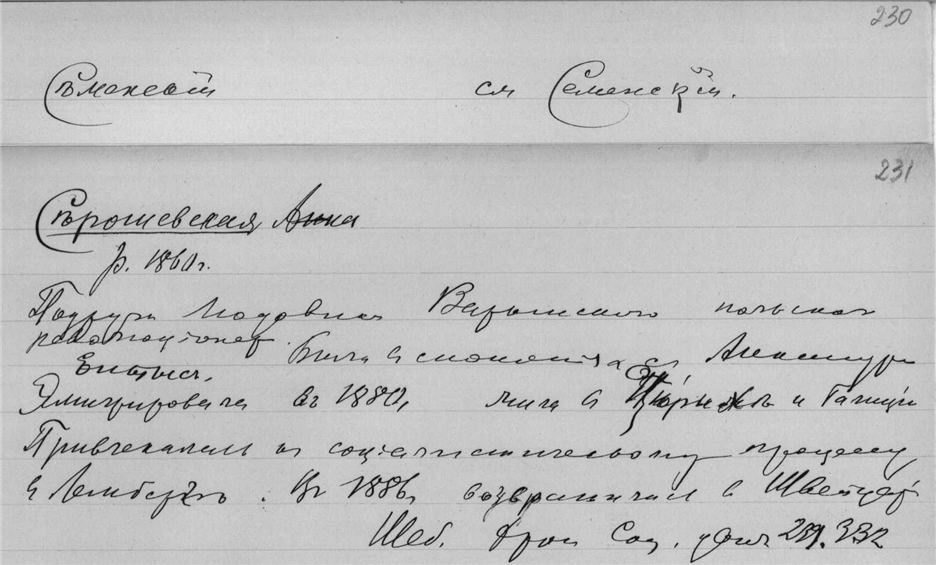 230
Съменскій см Семенскій.
231
Сѣрошевская Анна
р. 1860 г.
Подруга Людовика Варынского польская
революціонер.
Была в сношениях с Александр
Ентыс.
Эмигрировала въ 1880, жила в Цюрихѣ и Галиции
Привлекалась къ социалистическому процессу
в Лембергѣ. Въ 1886 возвратилась в Швейцар
Шеб. Хрон Соц. движ 289. 332